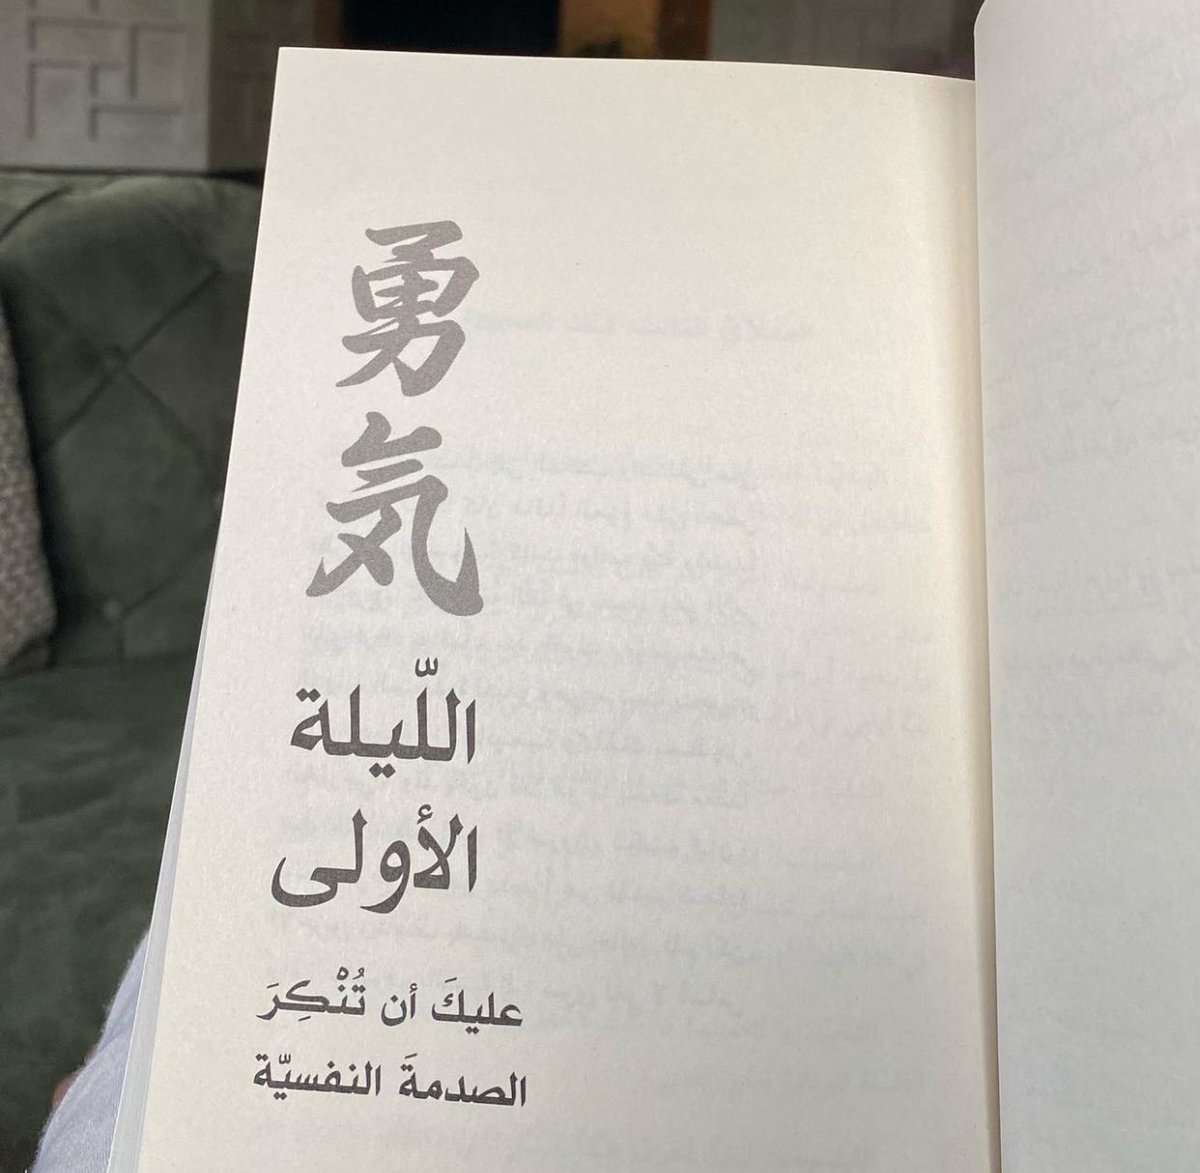 勇気
اللّيلة
الأولى
عليكَ أن تُنْكِرَ
الصدمةَ النفسيّة